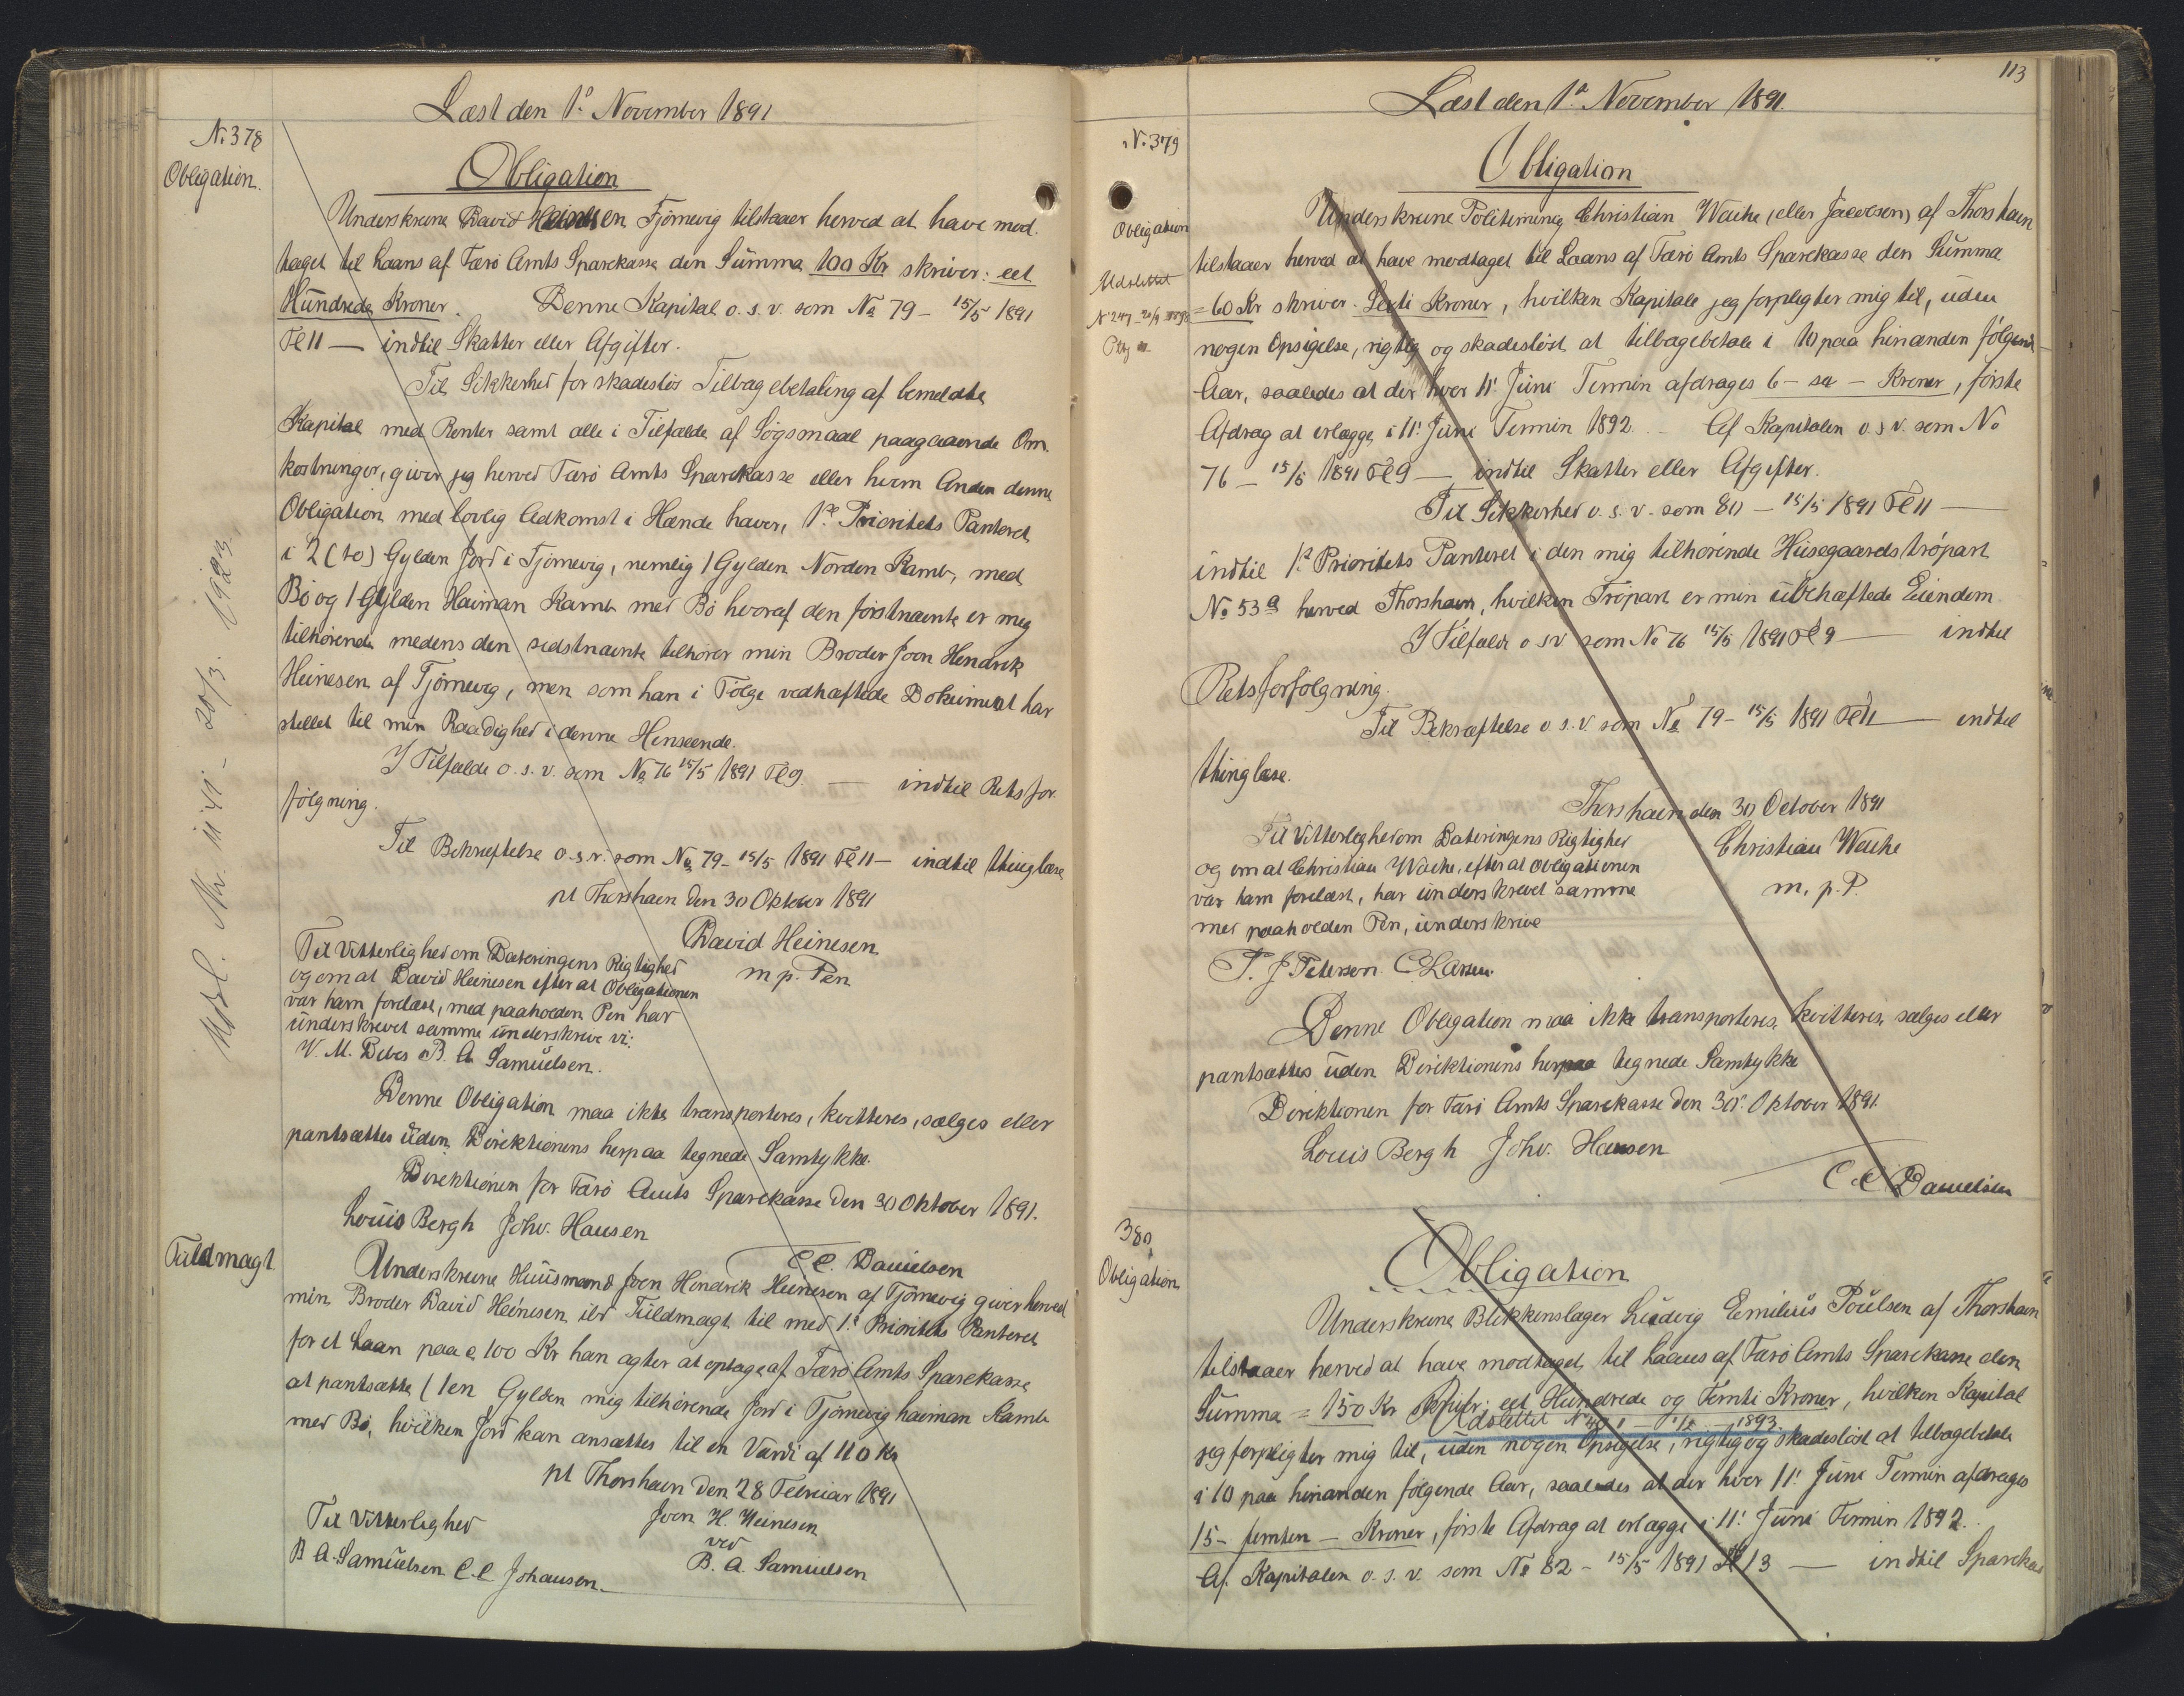 Læst den 1ᵒ November 1891
N. 378
Obligation.
Obligation
Underskrevne David Heinesen Tjörnevig tilstaaer herved at have mod-
taget til Laans af Færö Amts Sparekasse den Summa 100 Kr skriver: eet
Hundrede Kroner. Denne Kapital o. s. v. som No 79 - 15/5 1891
Fl 11 — indtil Skatter eller Afgifter.
Til Sikkerhed for skadeslös Tilbagebetaling af bemeldte
Kapital med Renter samt alle i Tilfælde af Sögsmaal paagaaende Om-
kostninger, giver jeg herved Færö Amts Sparekasse eller hvem Anden denne
Obligation med lovlig Adkomst i Hænde haver, 1ste Prioritets Panteret
i 2 (to) Gylden Jord i Tjörnevig, nemlig 1 Gylden Norden Kamb, med
Bö og 1 Gylden Haiman Kamb med Bö hvoraf den förstnævnte er mig
tilhörende medens den sidstnævnte tilhörer min Broder Joen Hendrik
Heinesen af Tjörnevig, men som han i Fölge vedhæftede Dokument har
stillet til min Raadighed i denne Henseende.
I Tilfælde o. s. v. som No 76 15/5 1891 Fl 9. — indtil Retsfor-
fölgning.
Til Bekræftelse o. s. v. som No 79 - 15/5 1891 Fl 11 — indtil thinglæse
pt Thorshavn den 30 Oktober 1891
David Heinesen
m. p. Pen
Til Vitterlighed om Dateringens Rigtighed
og om at David Heinesen efter at Obligationen
var ham forelæst, med paaholden Pen har
underskrevet samme underskrive vi:
V. M. Debes B. A. Samuelsen.
Denne Obligation maa ikke transporteres, kvitteres, sælges eller
pantsættes uden Direktionens herpaa tegnede Samtykke.
Direktionen for Færö Amts Sparekasse den 30 Oktober 1891.
Louis Bergh Johv. Hansen
C. C. Danielsen
Fuldmagt
Underskrevne Huusmand Joen Hendrik Heinesen af Tjörnevig giver herved
min Broder David Heinesen ibd Fuldmagt til med 1ste Prioritets Panteret
for et Laan paa c 100 Kr han agter at optage af Færö Amts Sparekasse
at pantsætte 1 en Gylden mig tilhörende Jord i Tjörnevig haiman Kamb
med Bö, hvilken Jord kan ansættes til en Værdi af 110 Kr
pt Thorshavn den 28 Februar 1891
Til Vitterlighed
Joen H. Heinesen
ved
B A. Samuelsen C. C. Johansen.
B. A. Samuelsen
Udsl. Nr. 1141 - 20/3. 1923.
113
Læst den 1ᵒ November 1891.
N. 379
Obligation
Udslettet
N 247
Obligation
Underskrevne Politiming Christian Wache (eller Jacobsen) af Thorshavn
tilstaaer herved at have modtaget til Laans af Færö Amts Sparekasse den Summa
= 60 Kr skriver Sexti Kroner, hvilken Kapitale jeg forpligter mig til, uden
nogen Opsigelse, rigtig og skadeslöst at tilbagebetale i 10 paa hinanden fölgende
Aar, saaledes at der hver 11' Juni Termin afdrages 6 - sex - Kroner, förste
Afdrag at erlægge i 11' Juni Termin 1892. — Af Kapitalen o. s. v. som No
76 - 15/5 1891 Fl 9 — indtil Skatter eller Afgifter.
Til Sikkerhed o. s. v. som 80 - 15/5 1891 Fl 11 —
indtil 1ste Prioritets Panteret i den mig tilhörende Husegaardströpart
No 53 a herved Thorshavn, hvilken Tröpart er min ubehæftede Eiendom
I Tilfælde o. s. v. som No 76 15/5 1891 Fl 9 — indtil
Retsforfölgning.
Til Bekræftelse o. s. v. som No 79 - 15/5 1891 Fl 11 — indtil
thinglæse.
Thorshavn den 30 October 1891
Til Vitterlighed om Dateringens Rigtighed
Christian Wache
og om at Christian Wache, efter at Obligationen
var ham forelæst, har underskrevet samme
m. p. P.
med paaholden Pen, underskrive
P. J Petersen. C Larsen.
Denne Obligation maa ikke transporteres, kvitteres, sælges eller
pantsættes uden Direktionens herpaa tegnede Samtykke
Direktionen for Færö Amts Sparekasse den 30' Oktober 1891.
Louis Bergh Johv. Hansen
C. C. Danielsen
380
Obligation
Obligation
Underskrevne Blikkenslager Ludvig Emilius Poulsen af Thorshavn
tilstaaer herved at have modtaget til Laans af Færö Amts Sparekasse den
Summa = 150 Kr skriver eet Hundrede og Femti Kroner, hvilken Kapital
Udslettet 1893.
jeg forpligter mig til, uden nogen Opsigelse, rigtig og skadeslöst at tilbagebetale
i 10 paa hinanden fölgende Aar, saaledes at der hver 11' Juni Termin afdrages
15 - femten - Kroner, förste Afdrag at erlægge i 11' Juni Termin 1892.
Af Kapitalen o. s. v. som No 82 - 15/5 1891 Fl 13 — indtil Sparekas